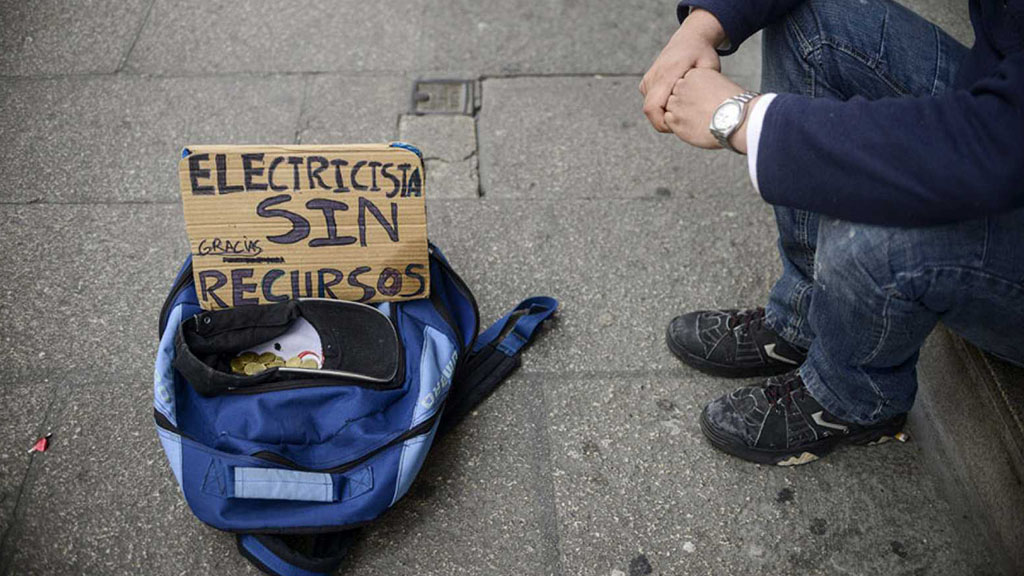 ELECTRICISTA
SIN
GRACIAS
RECURSOS